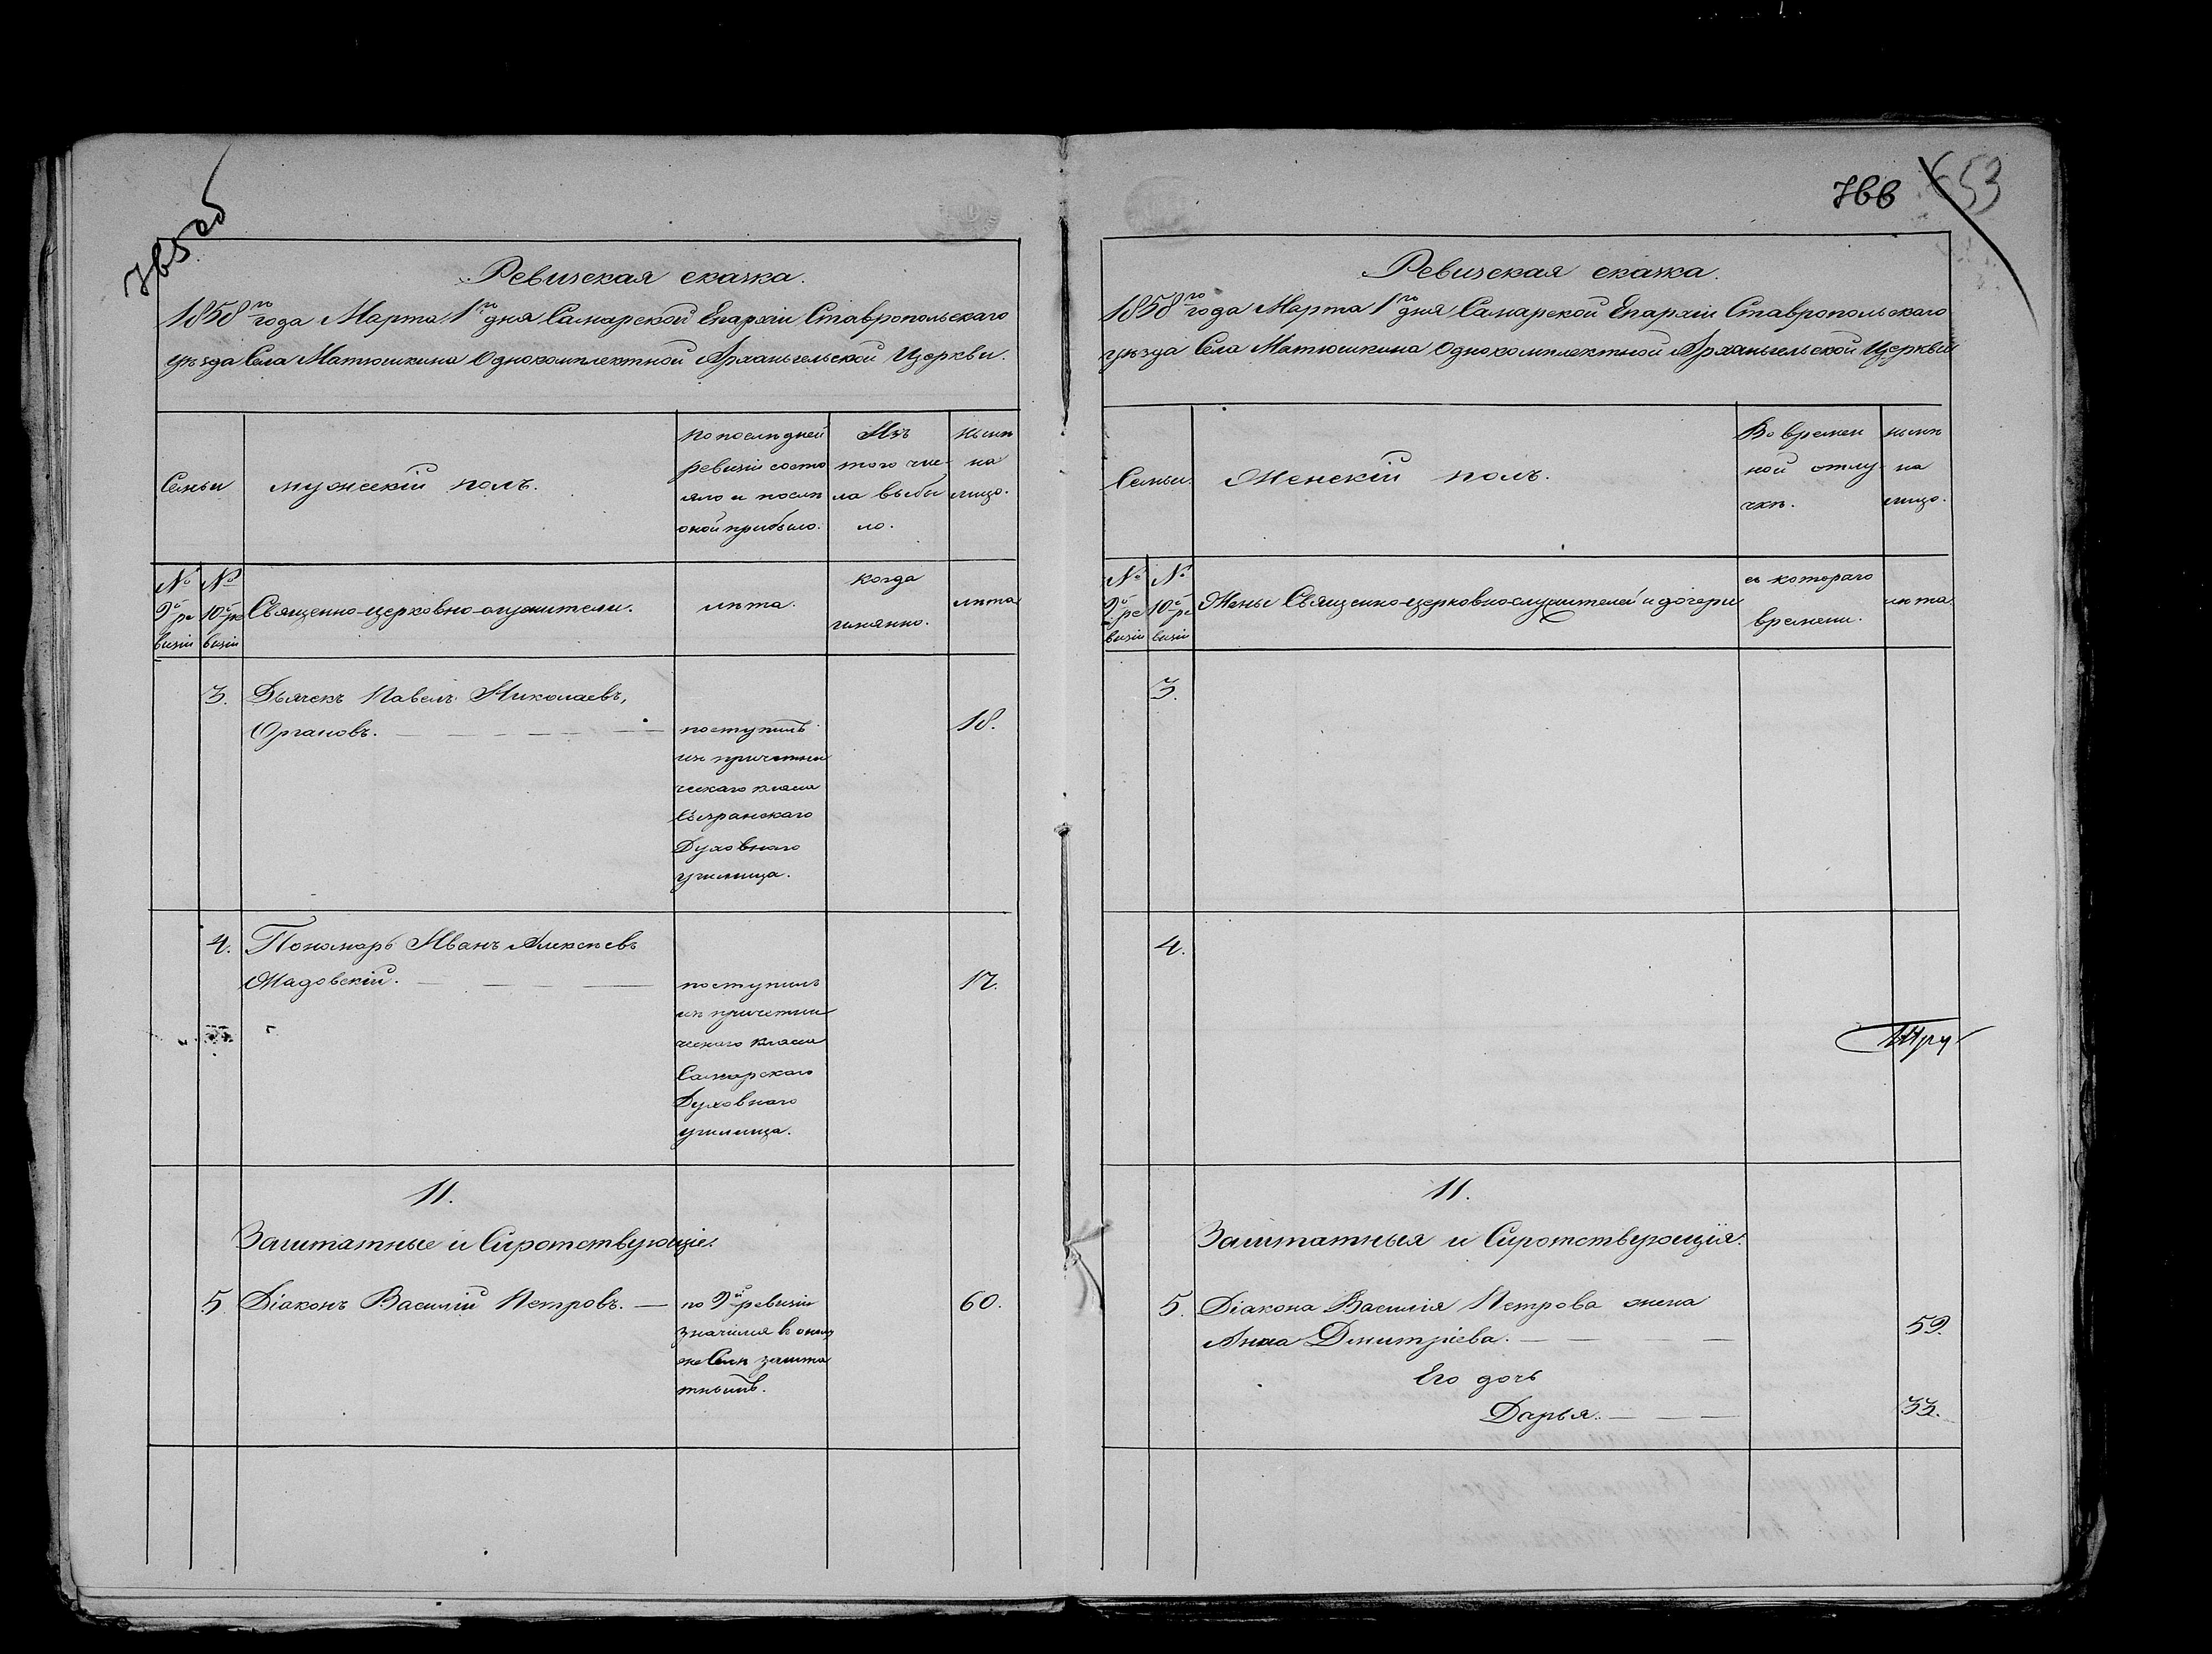 765 об
Ревизская сказка.
1858го года Марта 1го дня Самарской Епархіи Ставропольскаго
уѣзда Села Матюшкина Однокомплектной Архангельской Церкви.
Семьи
мужескій полъ.
по послѣдней
ревизіи состо
яло и послѣ
оной прибыло.
Изъ
того чис-
ла выбы
ло.
нынѣ
на
лицо.
№
9й ре
визіи
№
10й ре
визіи
Священно-церковно-служители.
лѣта.
когда
имянно.
лѣта
3.
Дьячекъ Павелъ Николаевъ,
Органовъ.
поступилъ
изъ причетни
ческаго класса
Сызранскаго
Духовнаго
училища.
18.
4.
Пономарь Иванъ Алексѣевъ
поступилъ
изъ причетни
ческаго класса
Самарскаго
Духовнаго
училища.
17.
11.
Заштатные и Сиротствующіе.
5
Діаконъ Василій Петровъ.
по 9й ревизіи
значился въ ономъ
же Селѣ зашта
тнымъ.
60.
766
653
Ревизская сказка.
1858го года Марта 1го дня Самарской Епархіи Ставропольскаго
уѣзда Села Матюшкина Однокомплектной Архангельской Церкви
Семьи
Женскій полъ.
Во времен
ной отлу-
чкѣ.
нынѣ
на
лицо.
№
9й ре
визіи
№
10й ре
визіи
Жены Священно-церковнослужителей и дочери
съ котораго
времени.
лѣта.
3.
4.
11.
Заштатныя и Сиротствующія.
5.
Діакона Василія Петрова жена
Анна Дмитріева.
59.
Его дочь
Дарья.
33.